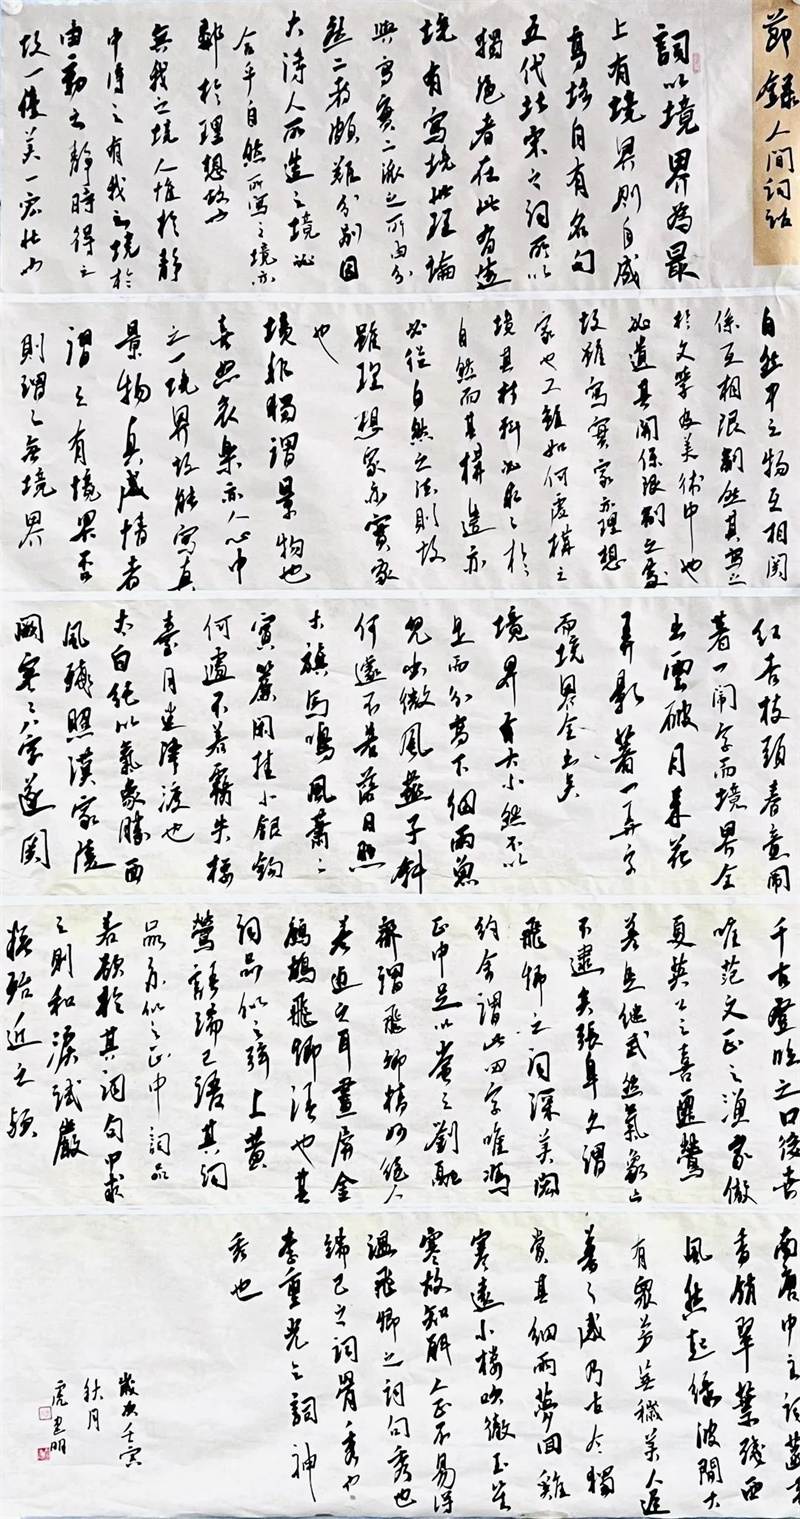 節錄人间词话
詞以境界為最
上有境界則自成
高格自有名句
五代北宋之詞所以
獨絕者在此有造
境有寫境此理論
與寫實二派之所由分
然二者頗難分別因
大詩人所造之境必
合乎自然所寫之境亦
鄰於理想故也
無我之境人惟於靜
中得之有我之境於
由動之靜時得之
故一優美一宏壯也
自然中之物互相関
係互相限制然其寫之
於文學及美術中也
必遺其関係限制之處
故雖寫實家亦理想
家也又雖如何虛構之
境其材料必求之於
自然而其構造亦
必從自然之法則故
雖理想家亦實家
也
境非獨謂景物也
喜怒哀樂亦人心中
之一境界故能寫真
景物真感情者
謂之有境界否
則謂之無境界
紅杏枝頭春意鬧
著一鬧字而境界全
出雲破月來花
弄影著一弄字
而境界全出矣
境界有大小然不以
是而分高下細雨魚
兒出微風燕子斜
何遽不若落日照
大旗馬鳴風蕭之
寶簾閑挂小銀鈎
何遽不若霧失樓
臺月迷津渡也
太白純以氣象勝西
風殘照漢家陵
闕寥之八字遂関
千古登臨之口後世
唯范文正之漁家傲
夏英公之喜遷鶯
差足繼武然氣象已
不逮矣張皋文謂
飛卿之詞深美閎
約余謂此四字唯馮
正中足以當之劉融
齋謂飛卿精妙絕人
差近之耳畫屏金
鷓鴣飛卿語也其
詞品似之弦上黃
鶯語端己語其詞
品亦似之正中詞品
若欲於其詞句中求
之則和淚試嚴
妝殆近之歟
南唐中主詞菡萏
香銷翠葉殘西
風愁起綠波間大
有眾芳蕪穢美人遲
暮之感乃古今獨
賞其細雨夢回雞
塞遠小樓吹徹玉笙
寒故知解人正不易得
溫飛卿之詞句秀也
端己之詞骨秀也
李重光之詞神
秀也
歲次壬寅
秋月